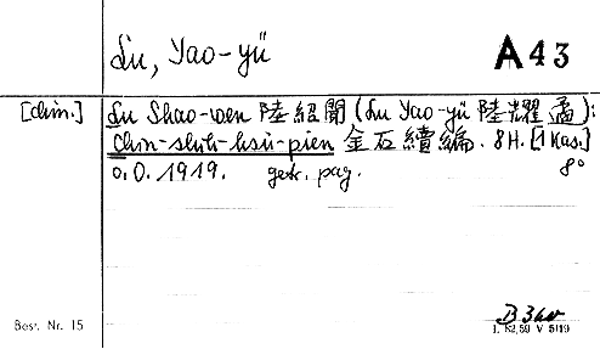 Lu, Yao-yü
A43
[chin.] Lu Shao-wen 陸紹聞 (Lu Yao-yü 陸耀遹):
Chin-shih-hsü-pien 金石續編. 8H. [1 Kas.]
o.O. 1919. getr. pag. 8°
Best. Nr. 15
I. 52,59 V 5119